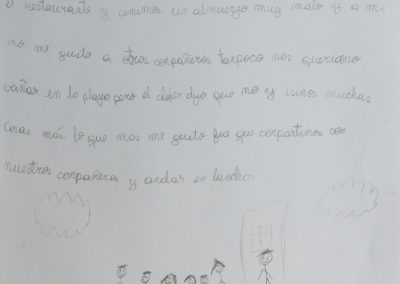 el restaurante y comimos un almuerzo muy malo y a mi
no me gusto a otros conpañeros tanpoco nos queriamo
vañar en la playa pero el chofer dijo que no y isimos muchas
cosas más lo que mas me gusto fue que conpartimos con
nuestros conpañeros y andar en lancha.